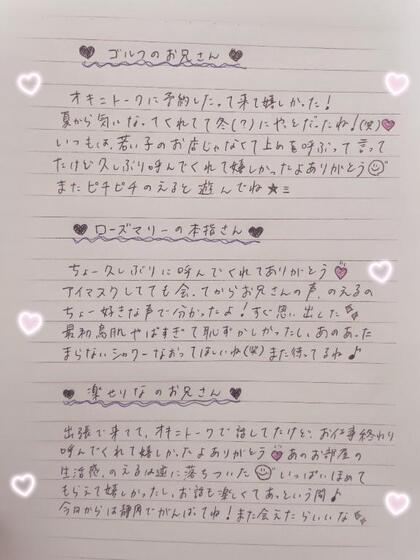 ゴルフのお兄さん
オキニトークに予約したって来て嬉しかった！
夏から気になってくれてて冬(?)にやっとだったね！(笑)
いつもは、若い子のお店じゃなくて上めを呼ぶって言って
たけど久しぶり呼んでくれて嬉しかったよありがとう
またピチピチのえると遊んでね★ミ
ローズマリーの本指さん
ちょー久しぶりに呼んでくれてありがとう
アイマスクしてても会ってからお兄さんの声、のえるの
ちょー好きな声で分かったよ！すぐ思い出した
最初鳥肌やばすぎて恥ずかしかったし、あのあった
まらないシャワーなおってほしいね(笑)また待ってるね♪
楽せりなのお兄さん
出張で来てて、オキニトークで話してたけど、お仕事終わり
呼んでくれて嬉しかったよありがとう あのお部屋の
生活感、のえるは逆に落ちついた いっぱいほめて
もらえて嬉しかったし、お話も楽しくてあっという間♪
今日からは静岡でがんばってね！また会えたらいいな